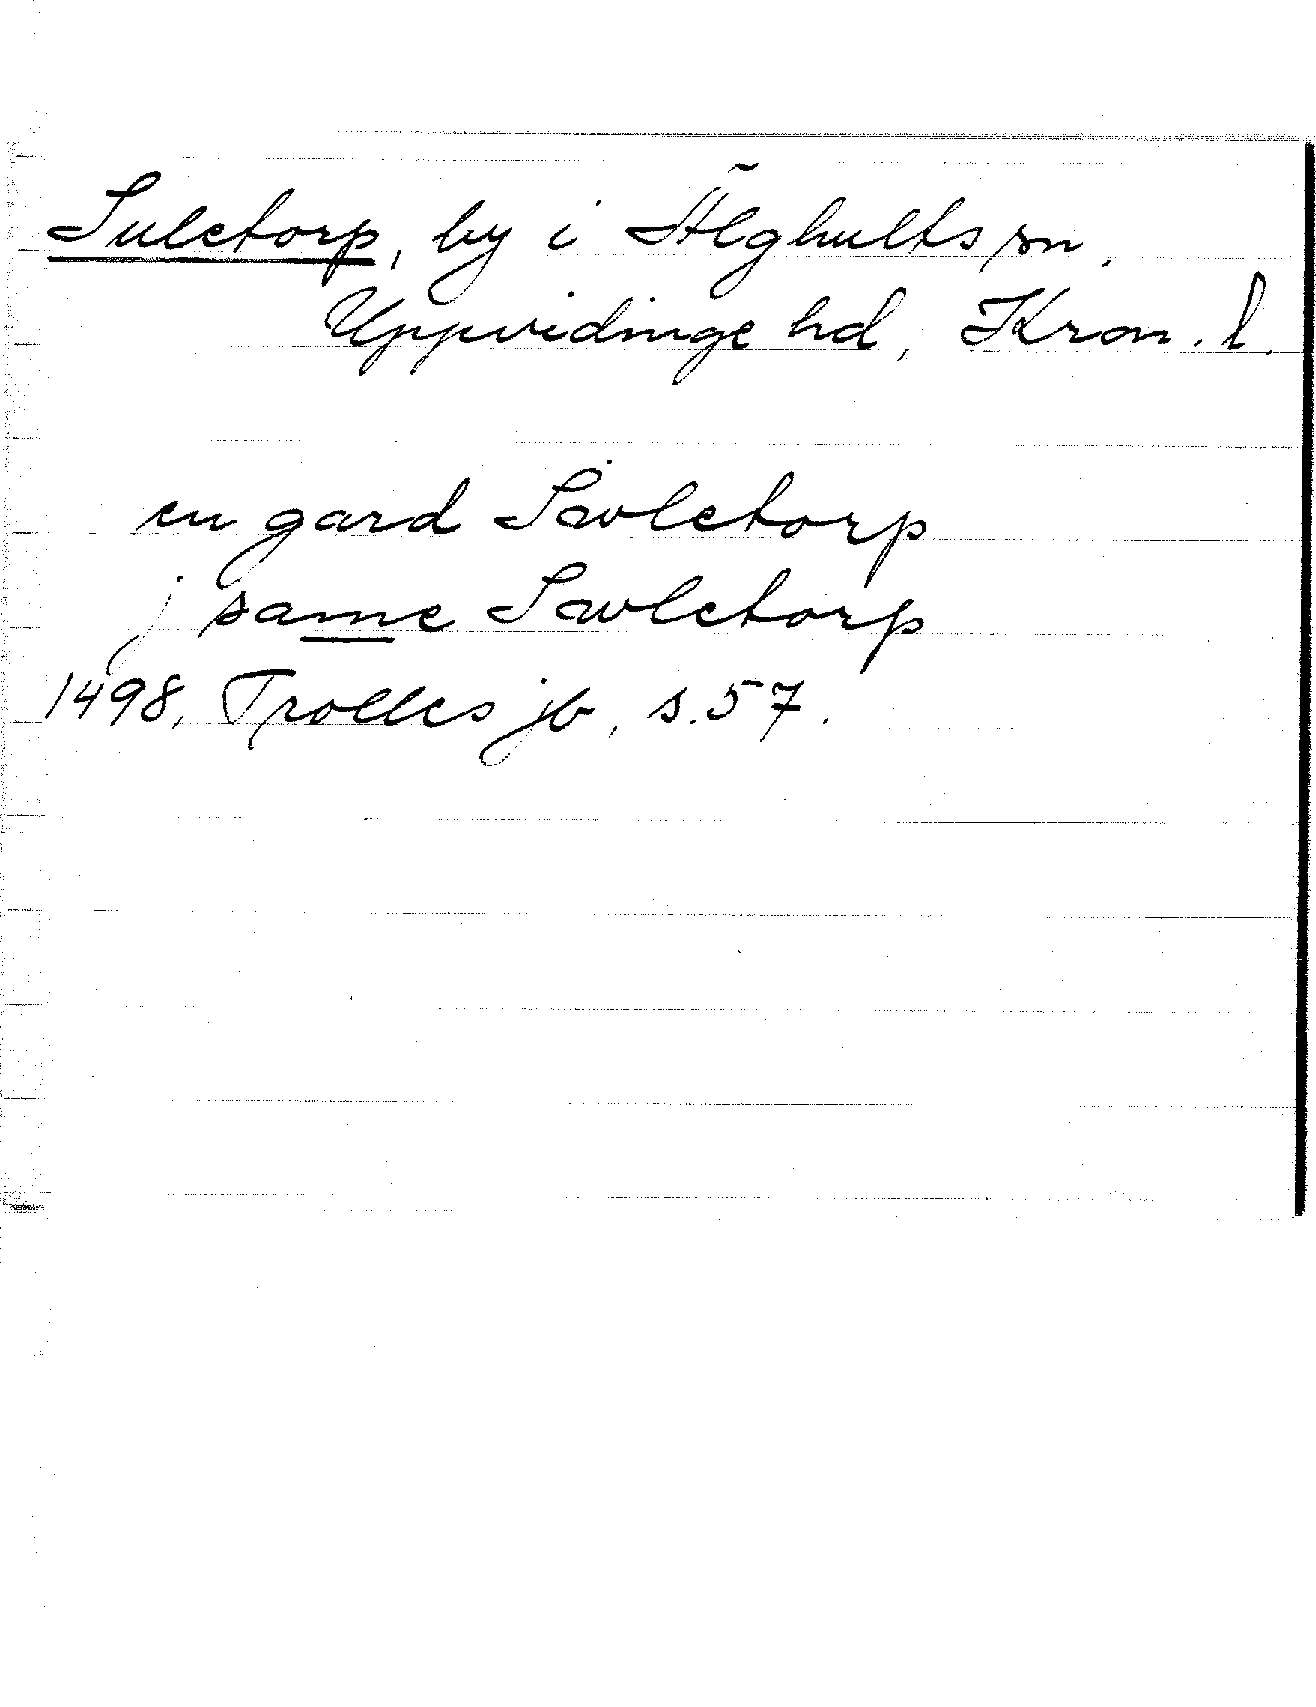 Suletorp, by i Älghults sn,
Uppvidinge hd, Kron. l.
en gard Swletorp
j same Swletorp
1498, Trolles jb, s. 57.